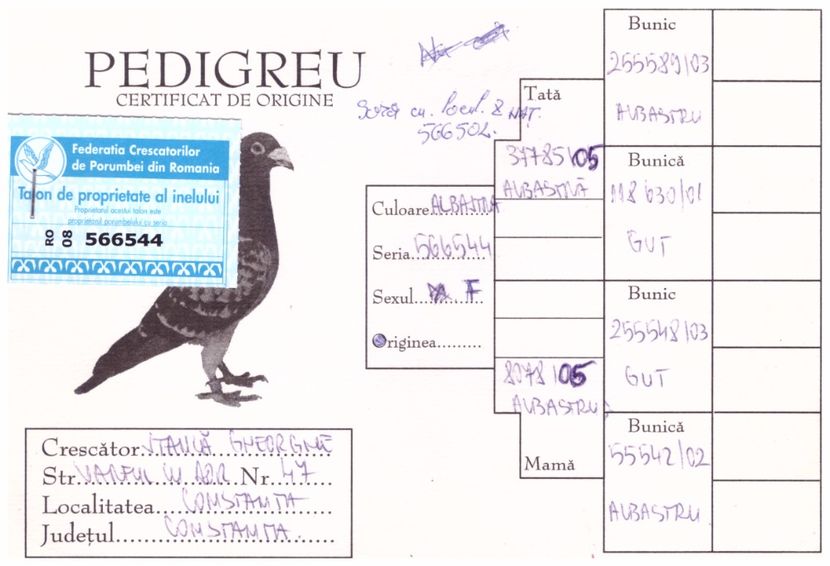 PEDIGREU
CERTIFICAT DE ORIGINE
Federatia Crescatorilor
de Porumbei din Romania
Talon de proprietate al inelului
Proprietarul acestui talon este
proprietarul porumbelului cu seria
RO 08 566544
cu locul 2 NAȚ.
566502.
Culoare ALBASTRĂ
Seria 566544
Sexul F
Originea
Tată
37785/05
ALBASTRĂ
8078/05
ALBASTRU
Mamă
Bunic
255589/03
ALBASTRU
Bunică
118630/01
GUT
Bunic
255548/03
GUT
Bunică
55542/02
ALBASTRU
Crescător GHEORGHE
Str. Nr. 47
Localitatea CONSTANTA
Județul CONSTANTA